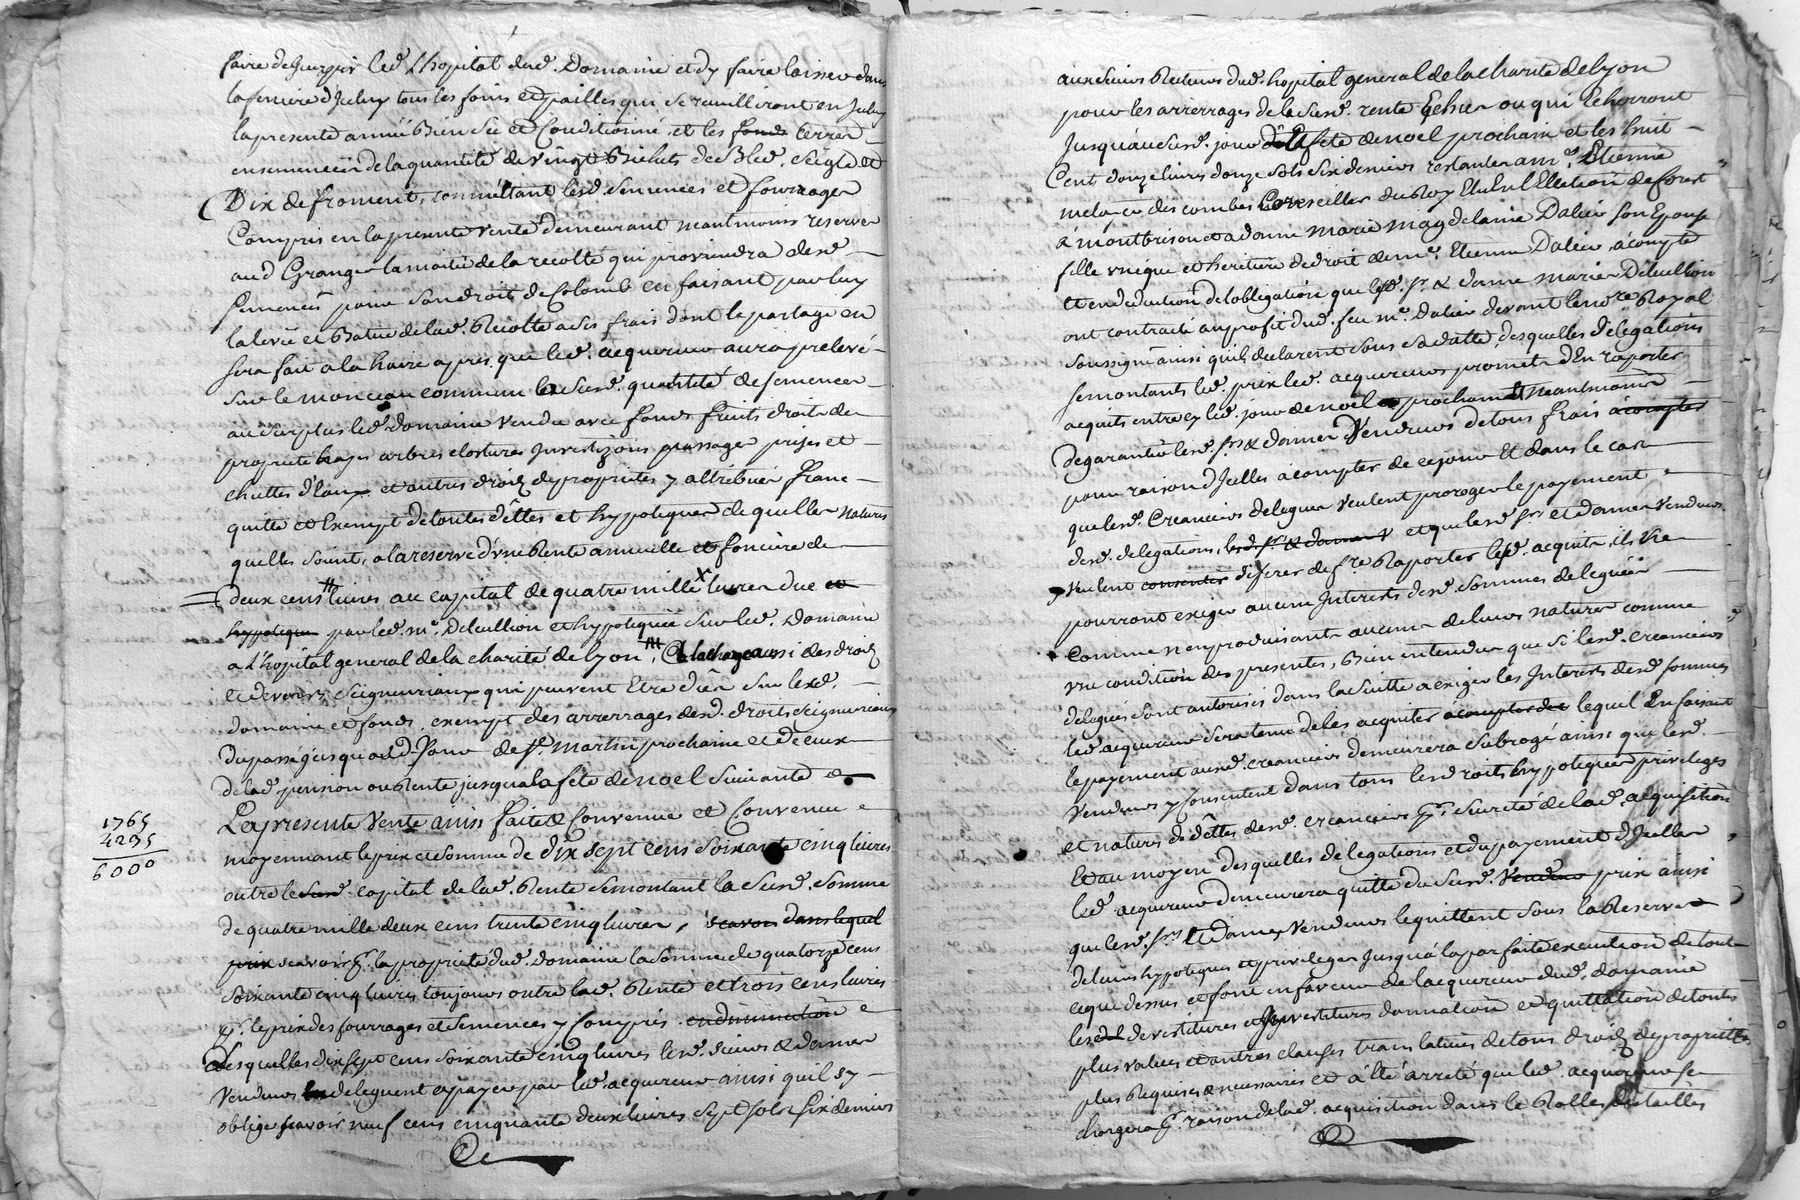 faire deguerpir led. hopital dud. Domaine et dy faire laisser dans
la feniere d'Iceluy tous les foins et pailles qui se cueilliront en Iceluy
la presente année Bien sec et Conditionné et les fonds terres
ensemencées de la quantité de vingt Bichets de Bled. seigle et
Dix de froment, lesd. semences et fourrages
Compris en la presente vente demeurant neantmoins reservé
aud Granger la moitié de la recolte qui proviendra desd
semences pour son droit de Colomb en faisant par luy
la levée et Batue de lad. Recolte a ses frais dont le partage en
sera fait a la haire apres que led. acquereur aura prelevé
sur le monceau commun la susd. quantité de semences
au surplus led. domaine vendu avec fonds fruits droits de
propriété hayes arbres clostures Investizons passages prises et
chuttes d'Eaux et autres droits de proprietés y attribués franc
quitte et Exempt de toutes dêttes et hypoteques de quelles natures
quelles soient, a la reserve d'une Rente annuelle et fonciere de
deux cens livres au capital de quatre mille livres due et
hypotequée par led. me. Deleullion et hypotequée sur led. Domaine
a l'hopital general de la charité de lyon, a la charge aussi des droits
et devoirs seigneuriaux qui peuvent Etre dûs sur lesd.
domaine et fonds, exempt des arrerages desd. droits seigneuriaux
du passé jusquaud. Jour de st. martin prochaine et de ceux
de lad. pension ou Rente jusqua la fete de noel suivante
La presente Vente ainsi faitte Convenue et Convenue
moyennant le prix et somme de dix sept cens soixante cinq livres
1765
4235
6000
outre le susd. capital de lad. Rente se montant la susd. somme
de quatre mille deux cens trente cinq livres, scavoir dans lequel
prix scavoir pr. la propriété dud. Domaine la somme de quatorze cens
soixante cinq livres toujours outre lad. Rente et trois cens livres
pr. le prix des fourrages et semences y Compris en diminution
Lesquelles dix sept cens soixante cinq livres lesd. sieurs & dames
Vendeurs deleguent a payer par led. acquereur ainsi quil sy
oblige scavoir neuf cens cinquante deux livres sept sols six deniers
aux sieurs Recteurs dud. hopital general de la charité de lyon
pour les arrerages de la susd. rente Echus ou qui Echerront
Jusqu'au susd. jour de la fete de noel prochain et les huit
Cents douze livres douze sols six deniers restantes a me. Etienne
des combes Conseiller du Roy En l'Ellection de forest
a montbrison et a dame marie magdelaine Dalier son Epouse
fille unique et heritiere de droit de me. Etienne Dalier a compte
et en deduction de l'obligation que lesd. sr. & dame mariés Deleullion
ont contracté au profit dud. feu me. Dalier devant le nore. Royal
soussigné ainsi quils declarent sous sa datte desquelles délégations
se montants led. prix led. acquereur promet d'En raporter
acquits entre cy led. jour de noel prochain et neantmoins
de garantir lesd. srs & dames Vendeurs de tous frais a compter
pour raison d'Icelles a compter de ce jour Et dans le cas
que lesd. Creanciers delegués veulent proroger le payement
desd. delegations, lesd. sr. & dames et que lesd. srs et dames vendeurs
veulent consentir differer de se Raporter lesd. acquits, ils ne
pourront exiger aucuns Interests desd. sommes deleguées
Comme n'en produisant aucuns de leurs natures comme
une condition des presentes, Bien entendu que si lesd. creanciers
delegués sont autorisés dans la suitte a exiger les Interests desd. sommes
led. acquereur sera tenu de les acquiter a compter de lequel En faisant
le payement auxd. creanciers demeurera subrogé ainsi que lesd.
Vendeurs y Consentent dans tous lesd. droits hypoteques privileges
et natures de dêttes desd. creanciers pr. sureté de lad. acquisition
Et au moyen desquelles delegations et du payement d'Icelles
led. acquereur demeurera quitte du susd. Vendeur prix ainsi
que lesd. srs Et dames Vendeurs le quittent sous la Reserve
de leurs hypoteques et privileges Jusqu'a la parfaite execution de tout
ce que dessus et font en faveur de l'acquereur dud. domaine
les devestitures et Investitures donnation et quittation de toutes
plus values et autres clauses translatives de tous droits de proprietté
plus Requises & necessaires et a été arreté que led. acquereur se
chargera pr. raison de lad. acquisition dans le Rolles des tailles